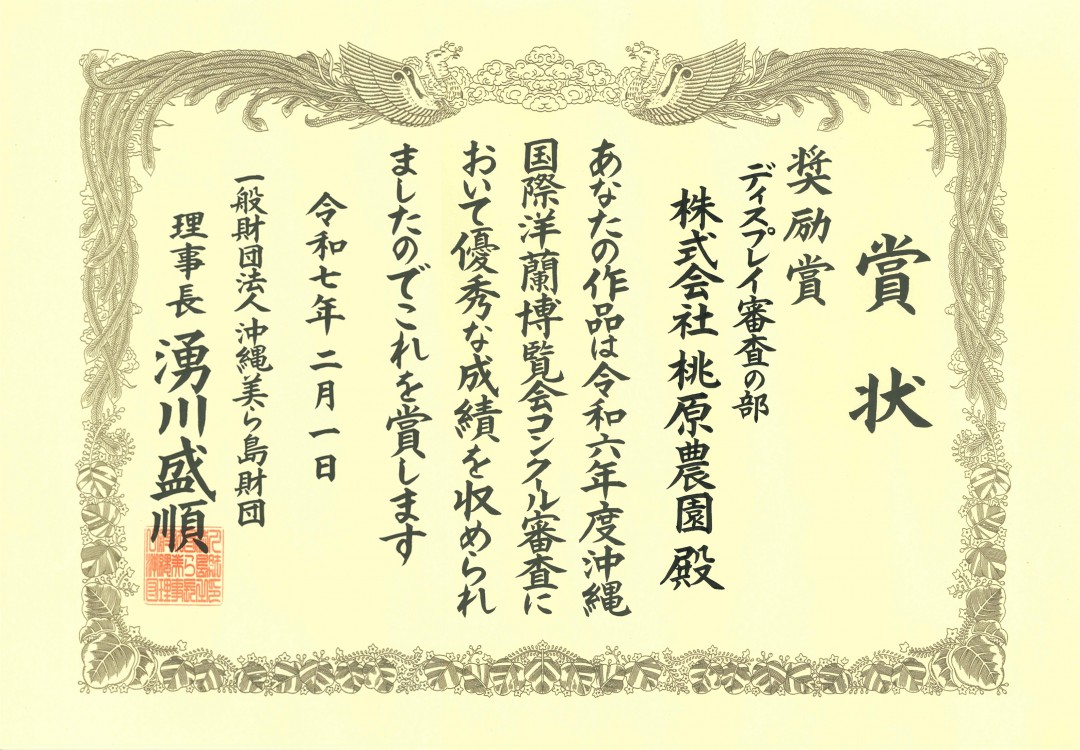 賞状
奨励賞
ディスプレイ審査の部
株式会社 桃原農園 殿
あなたの作品は令和六年度沖縄
国際洋蘭博覧会コンクール審査に
おいて優秀な成績を収められ
ましたのでこれを賞します
令和七年 二月一日
一般財団法人 沖縄美ら島財団
理事長 湧川盛順